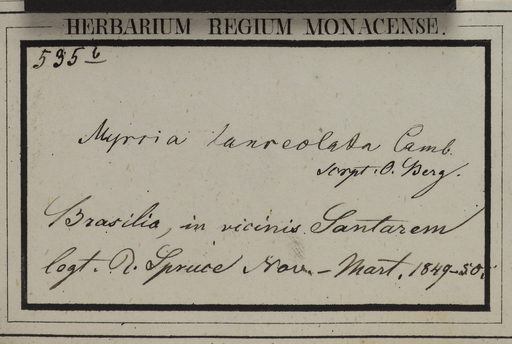 HERBARIUM REGIUM MONACENSE.
535 b
Myrcia lanceolata Camb.
script. O. Berg.
Brasilia, in vicinis Santarem
legt. R. Spruce Nov. - Mart. 1849-50.